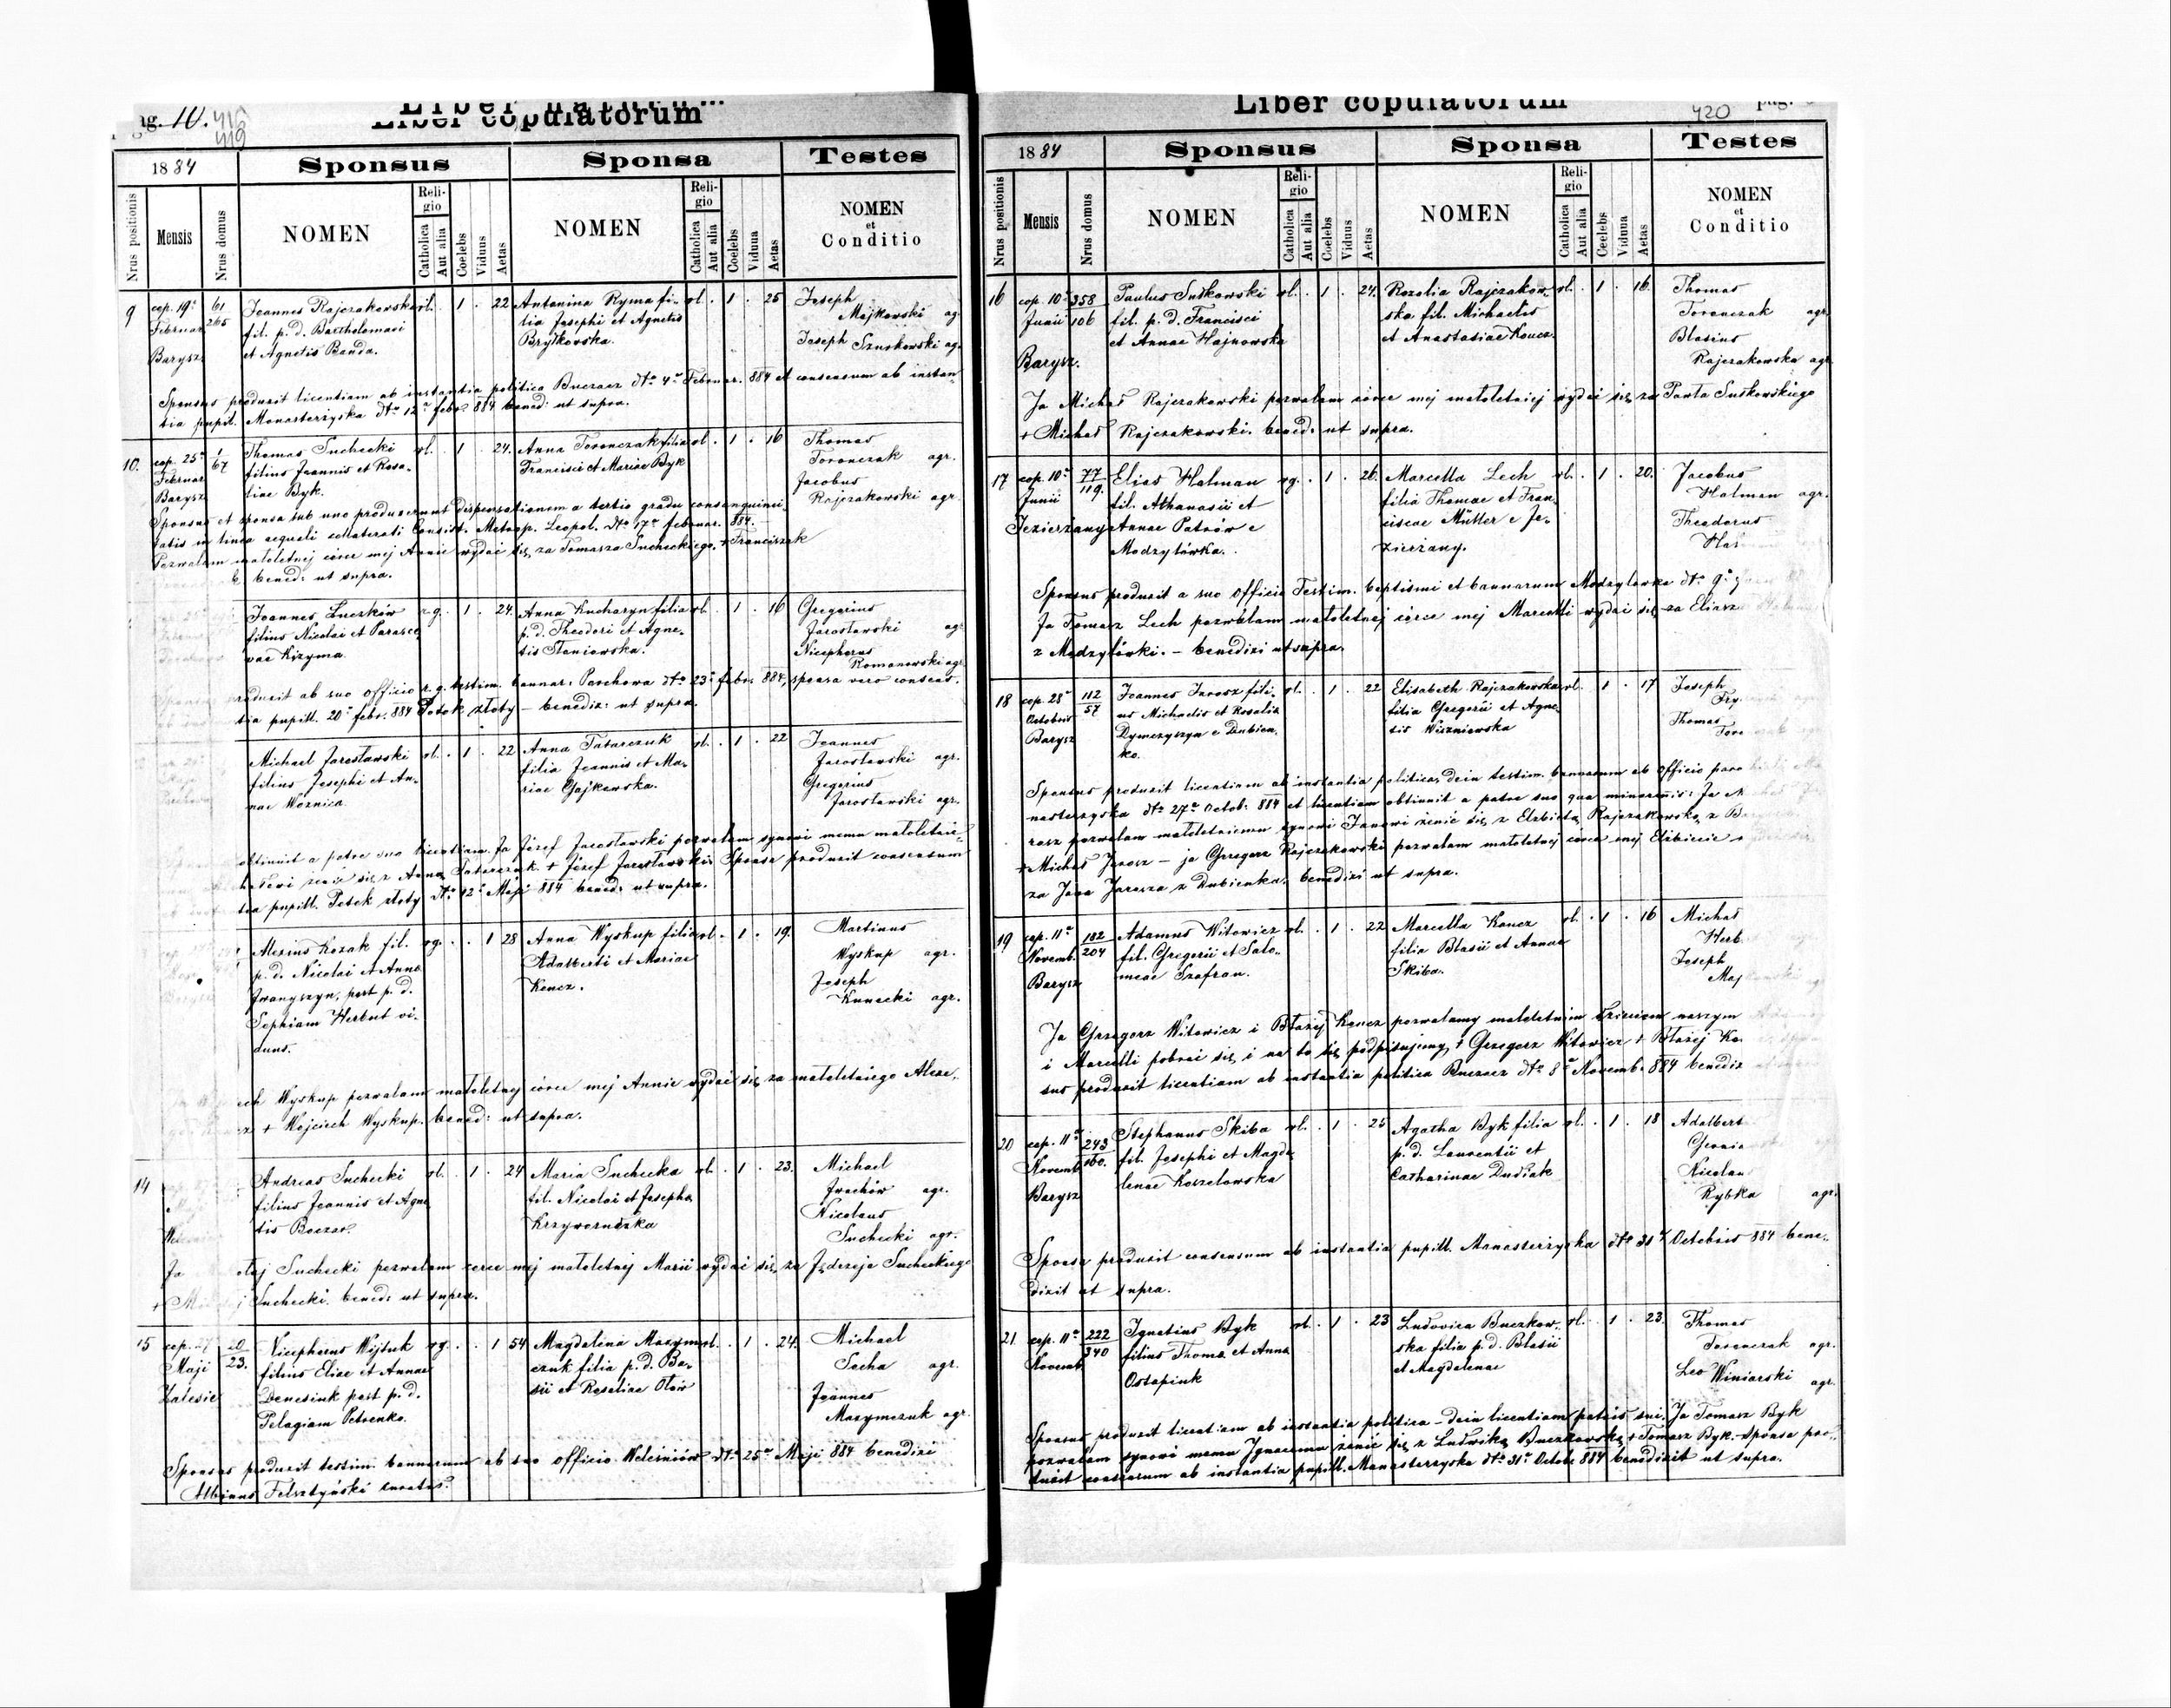 pag. 10. 416
419
Liber copulatorum
1884 Sponsus Sponsa Testes
Nrus positionis Mensis Nrus domus NOMEN Religio Catholica Aut alia Coelebs Viduus Aetas NOMEN Religio Catholica Aut alia Coelebs Vidua Aetas NOMEN et Conditio
9 cop. 19a 61 Joannes Rajczakowski rl. . 1 . 22 Antonina Ryma fi- rl. . 1 . 25 Joseph
Februar 265 fil. p. d. Bartholomaei lia Josephi et Agnetis Majkowski ag.
Barysz et Agnetis Banda. Brytkowska. Joseph Szuskowski ag.
Sponsus produxit licentiam ab instantia politica Buczacz dto 4a Februar. 884 et consensum ab instan-
tia pupil. Monasterzyska dto 12a febr. 884 bened: ut supra.
10. cop. 25a 1 Thomas Suchecki rl. . 1 . 24. Anna Toronczak filia rl. . 1 . 16 Thomas
Februar 67 filius Joannis et Rosa- Francisci et Mariae Byk Toronczak agr.
Barysz liae Byk. Jacobus
Rajczakowski agr.
Sponsus et sponsa sub uno produxerunt dispensationem a tertio gradu consanguini-
tatis in linea aequali collaterali Consist. Metrop. Leopol. dto 17a februar. 884.
Pozwalam małoletnej córce mej Annie wydać się za Tomasza Sucheckiego. + Franciszek
bened: ut supra.
Joannes Luczków r.g. . 1 . 24. Anna Kucharyn filia rl. . 1 . 16 Gregorius
filius Nicolai et Parasce- p. d. Theodori et Agne- Jarosławski agr
vae Kizyma. tis Staniowska. Nicephorus
Romanowski agr.
produxit ab suo officio r. g. testim. bannor. Porchowa dto 23a febr. 884, sponsa vero consens.
tia pupill. 20a febr. 884 Potok złoty – benedix: ut supra.
Michael Jarosławski rl. . 1 . 22 Anna Tatarczuk rl. . 1 . 22 Joannes
filius Josephi et An- filia Joannis et Ma- Jarosławski agr.
nae Woznica. riae Gajkowska. Gregorius
Jarosławski agr.
obtinuit a patre suo licentiam. Ja Józef Jarosławski pozwalam synowi memu małoletnie-
żenić się z Anną Tatarczuk. + Józef Jarosławski. Sponsa produxit consensum
tia pupill. Potok złoty dto 12a Maji 884 bened: ut supra.
Alexius Kozak fil. rg. . . 1 28 Anna Wyskup filia rl. . 1 . 19. Martinus
p. d. Nicolai et Anna Adalberti et Mariae Wyskup agr.
Iwanyszyn, post p. d. Koncz. Joseph
Sophiam Herbut vi- Kunecki agr.
duus.
ech Wyskup pozwalam małoletnej córce mej Annie wydać się za małoletniego Alexe-
+ Wojciech Wyskup. bened: ut supra.
14 Andreas Suchecki rl. . 1 . 24 Maria Suchecka rl. . 1 . 23. Michael
filius Joannis et Agne- fil. Nicolai et Josepha Frochów agr.
tis Boczar. Krzyworuczka Nicolaus
Suchecki agr.
Ja Suchecki pozwalam corce mej małoletnej Marii wydać się za Jędrzeja Sucheckiego
+ Suchecki. bened: ut supra.
15 cop. 27 20 Nicephorus Wijtuk rg. . . 1 54 Magdalena Maxym- rl. . 1 . 24. Michael
Maji 23. filius Eliae et Annae czuk filia p. d. Ba- Socha agr.
Zalesie Denesiuk post p. d. sii et Rosaliae Joannes
Pelagiam Petrenko. Maxymczuk agr.
Sponsus produxit testim. bannorum ab suo officio Weleśniów dto 25a Maji 884 benedixi
Albinus Felsztyński curatus.
420
Liber copulatorum pag.
1884 Sponsus Sponsa Testes
Nrus positionis Mensis Nrus domus NOMEN Religio Catholica Aut alia Coelebs Viduus Aetas NOMEN Religio Catholica Aut alia Coelebs Vidua Aetas NOMEN et Conditio
16 cop. 10a 358 Paulus Sutkowski rl. . 1 . 24. Rozalia Rajczakow- rl. . 1 . 16. Thomas
Junii 106 fil. p. d. Francisci ska fil. Michaelis Toronczak agr.
Barysz. et Annae Hajnowska et Anastasiae Koncz. Blasius
Rajczakowska agr
Ja Michał Rajczakowski pozwalam córce mej małoletniej wydać się za Pawła Sutkowskiego
+ Michał Rajczakowski. bened: ut supra.
17 cop. 10a 77 Elias Hatman rg. . 1 . 26. Marcella Lech rl. . 1 . 20. Jacobus
Junii 119. fil. Athanasii et filia Thomae et Fran- Hatman agr.
Jezierzany Annae Patrów e ciscae Mütter e Je- Theodorus
Modzylówka. zierzany. Hat
Sponsus produxit a suo officio Testim. baptismi et bannorum Modzylowka dto 9a
Ja Tomasz Lech pozwalam małoletnej córce mej Marcelli wydać się za Eliasz
z Modzylówki. – benedixi ut supra.
18 cop. 28a 112 Joannes Jarosz fili- rl. . 1 . 22 Elisabeth Rajczakowska rl. . 1 . 17 Joseph
Octobris 57 us Michaelis et Rosalia filia Gregorii et Agne- Fry
Barysz Dymczyszyn e Dubien- tis Wiszniowska Thomas
ko. Toro
Sponsus produxit licentiam ab instantia politica, dein testim. bannorum ab officio paro
nasterzyska dto 27a Octob. 884 et licentiam obtinuit a patre suo qua minorennis: Ja M
rosz pozwalam małoletniemu synowi Janowi żenić się z Elzbietą Rajczakowską z B
+ Michał Jarosz – ja Grzegorz Rajczakowski pozwalam małoletnej córce mej Elzbiecie
za Jana Jarosza z Dubienka. benedixi ut supra.
19 cop. 11a 182 Adamus Witowicz rl. . 1 . 22 Marcella Koncz rl. . 1 . 16 Michał
Novemb. 204 fil. Gregorii et Salo- filia Blasii et Annae Herb
Barysz meae Szafran. Skiba. Joseph
Maj
Ja Grzegorz Witowicz i Błażej Koncz pozwalamy małoletnim dzieciom naszym
i Marcelli pobrać się i na to się podpisujemy + Grzegorz Witowicz + Błażej Ko
sus produxit licentiam ab instantia politica Buczacz dto 8a Novemb. 884 benedix
20 cop. 11a 243 Stephanus Skiba rl. . 1 . 25 Agatha Byk filia rl. . 1 . 18 Adalbert
Novemb. 160. fil. Josephi et Magda- p. d. Laurentii et
Barysz lenae Koszelowska Catharinae Dudiak Nicolau
Rybka agr.
Sponsa produxit consensum ab instantia pupill. Monasterzyska dto 31a Octobris 884 bene-
dixit ut supra.
21. cop. 11a 222 Ignatius Byk rl. . 1 . 23 Ludovica Buczkow- rl. . 1 . 23. Thomas
Novemb. 340 filius Thoma et Anna ska filia p. d. Blasii Toronczak agr.
Ostapiuk et Magdalenae Leo Winiarski agr.
Sponsus produxit licentiam ab instantia politica – dein licentiam patris sui. Ja Tomasz Byk
pozwalam synowi memu Ignacemu żenić się z Ludwiką Buczkowską + Tomasz Byk. Sponsa pro-
duxit consensum ab instantia pupill. Monasterzyska dto 31a Octobr 884 benedixit ut supra.